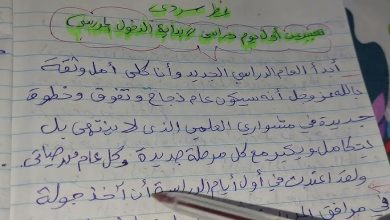 نمط سردي
تعبير عن أول يوم دراسي / بداية الدخول المدرسي
أبدأ العام الدراسي الجديد وأنا كلي أمل وثقة
بالله عز وجل أنه سيكون عام نجاح وتفوق وخطوة
جديدة في مشواري العلمي الذي لا ينتهي بل
يتكامل ويكبر مع كل مرحلة جديدة وكل عام
ولقد اعتدت في أول أيام الدراسة أن آخذ جولة
في مرافق